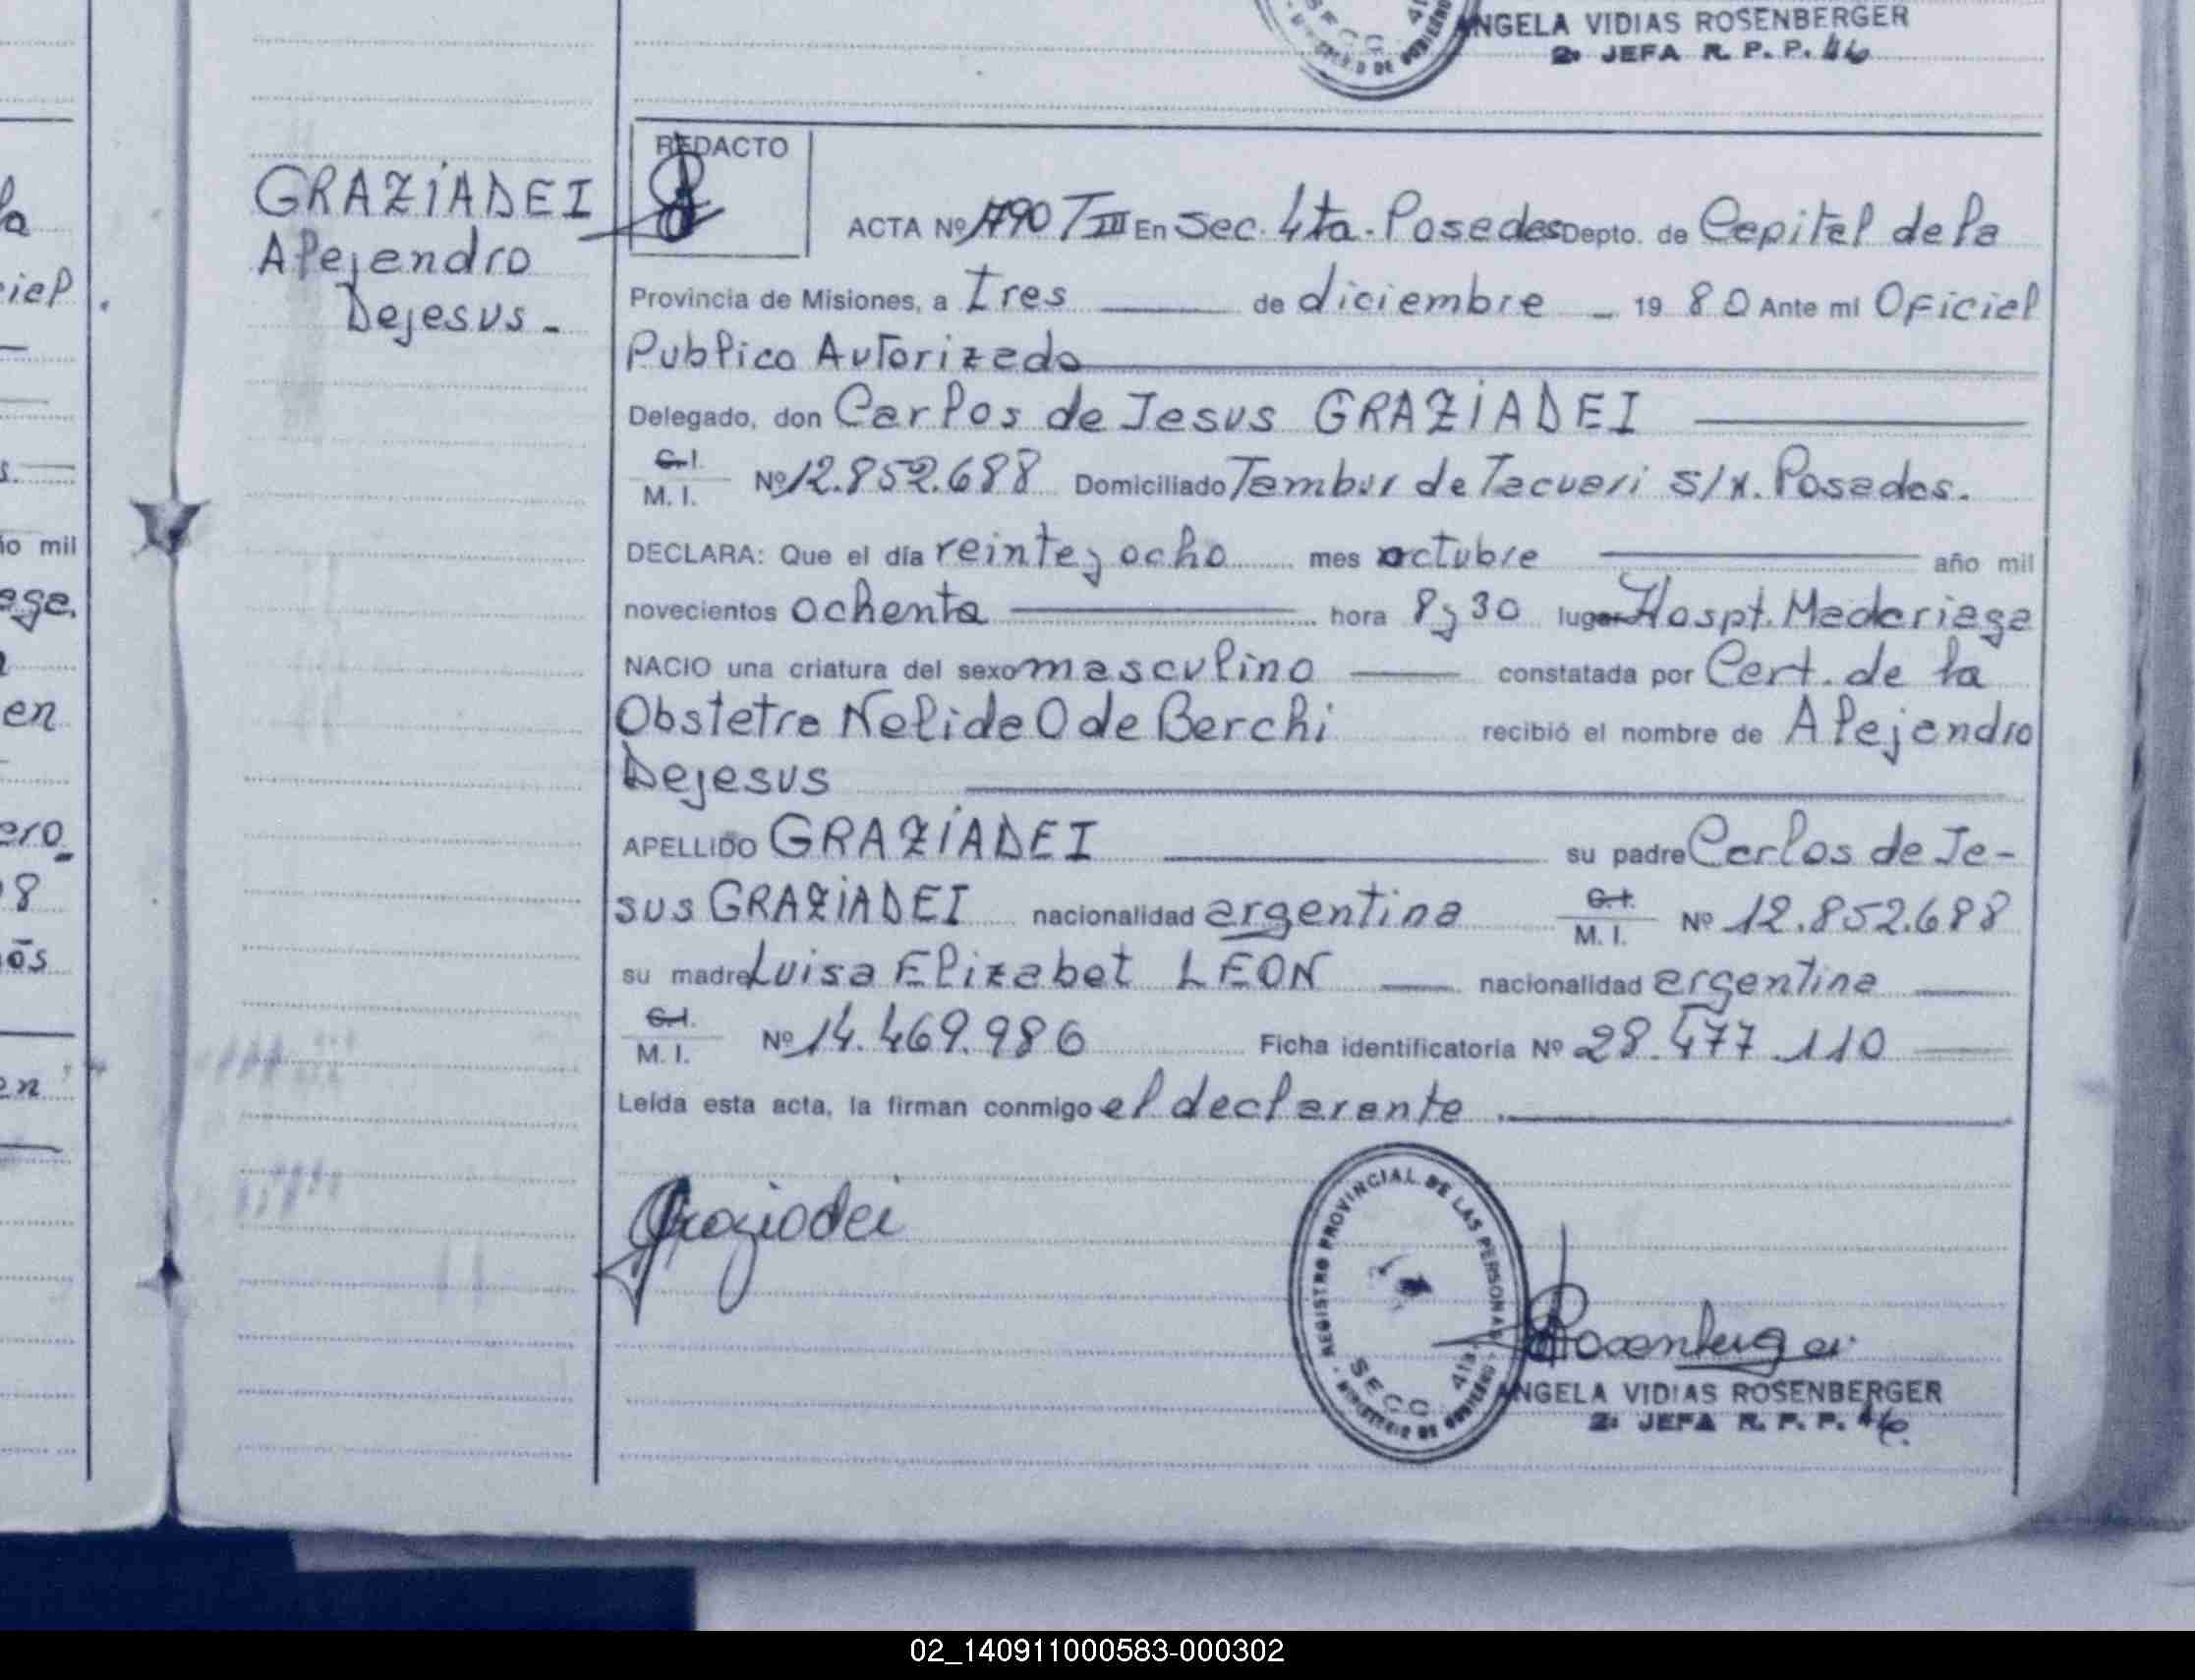 ANGELA VIDIAS ROSENBERGER
2: JEFA R. P. P. 4ta
GRAZIADEI
Alejandro
Dejesus -
REDACTO
ACTA Nº 1790 T III En Sec. 4ta. Posadas Depto. de Capital de la
Provincia de Misiones, a Tres de diciembre - 19 80 Ante mi Oficial
Publico Autorizado
Delegado, don Carlos de Jesus GRAZIADEI
C.I. M. I. Nº 12.852.688 Domiciliado Tambor de Tacuari s/n. Posadas.
DECLARA: Que el día veinte y ocho mes octubre año mil
novecientos ochenta hora 8 y 30 lugar Hospt. Madariaga
NACIO una criatura del sexo masculino constatada por Cert. de la
Obstetra Nelida O de Berchi recibió el nombre de Alejandro
Dejesus
APELLIDO GRAZIADEI su padre Carlos de Je-
sus GRAZIADEI nacionalidad argentina C.I. M. I. Nº 12.852.688
su madre Luisa Elizabet LEON nacionalidad argentina
C.I. M. I. Nº 14.469.986 Ficha identificatoria Nº 28.477.110
Leída esta acta, la firman conmigo el declarante.
Graziadei
REGISTRO PROVINCIAL DE LAS PERSONAS
SECC. 4ta.
MINISTERIO DE GOBIERNO
Rosenberger
ANGELA VIDIAS ROSENBERGER
2: JEFA R. P. P. 4ta.
02_140911000583-000302